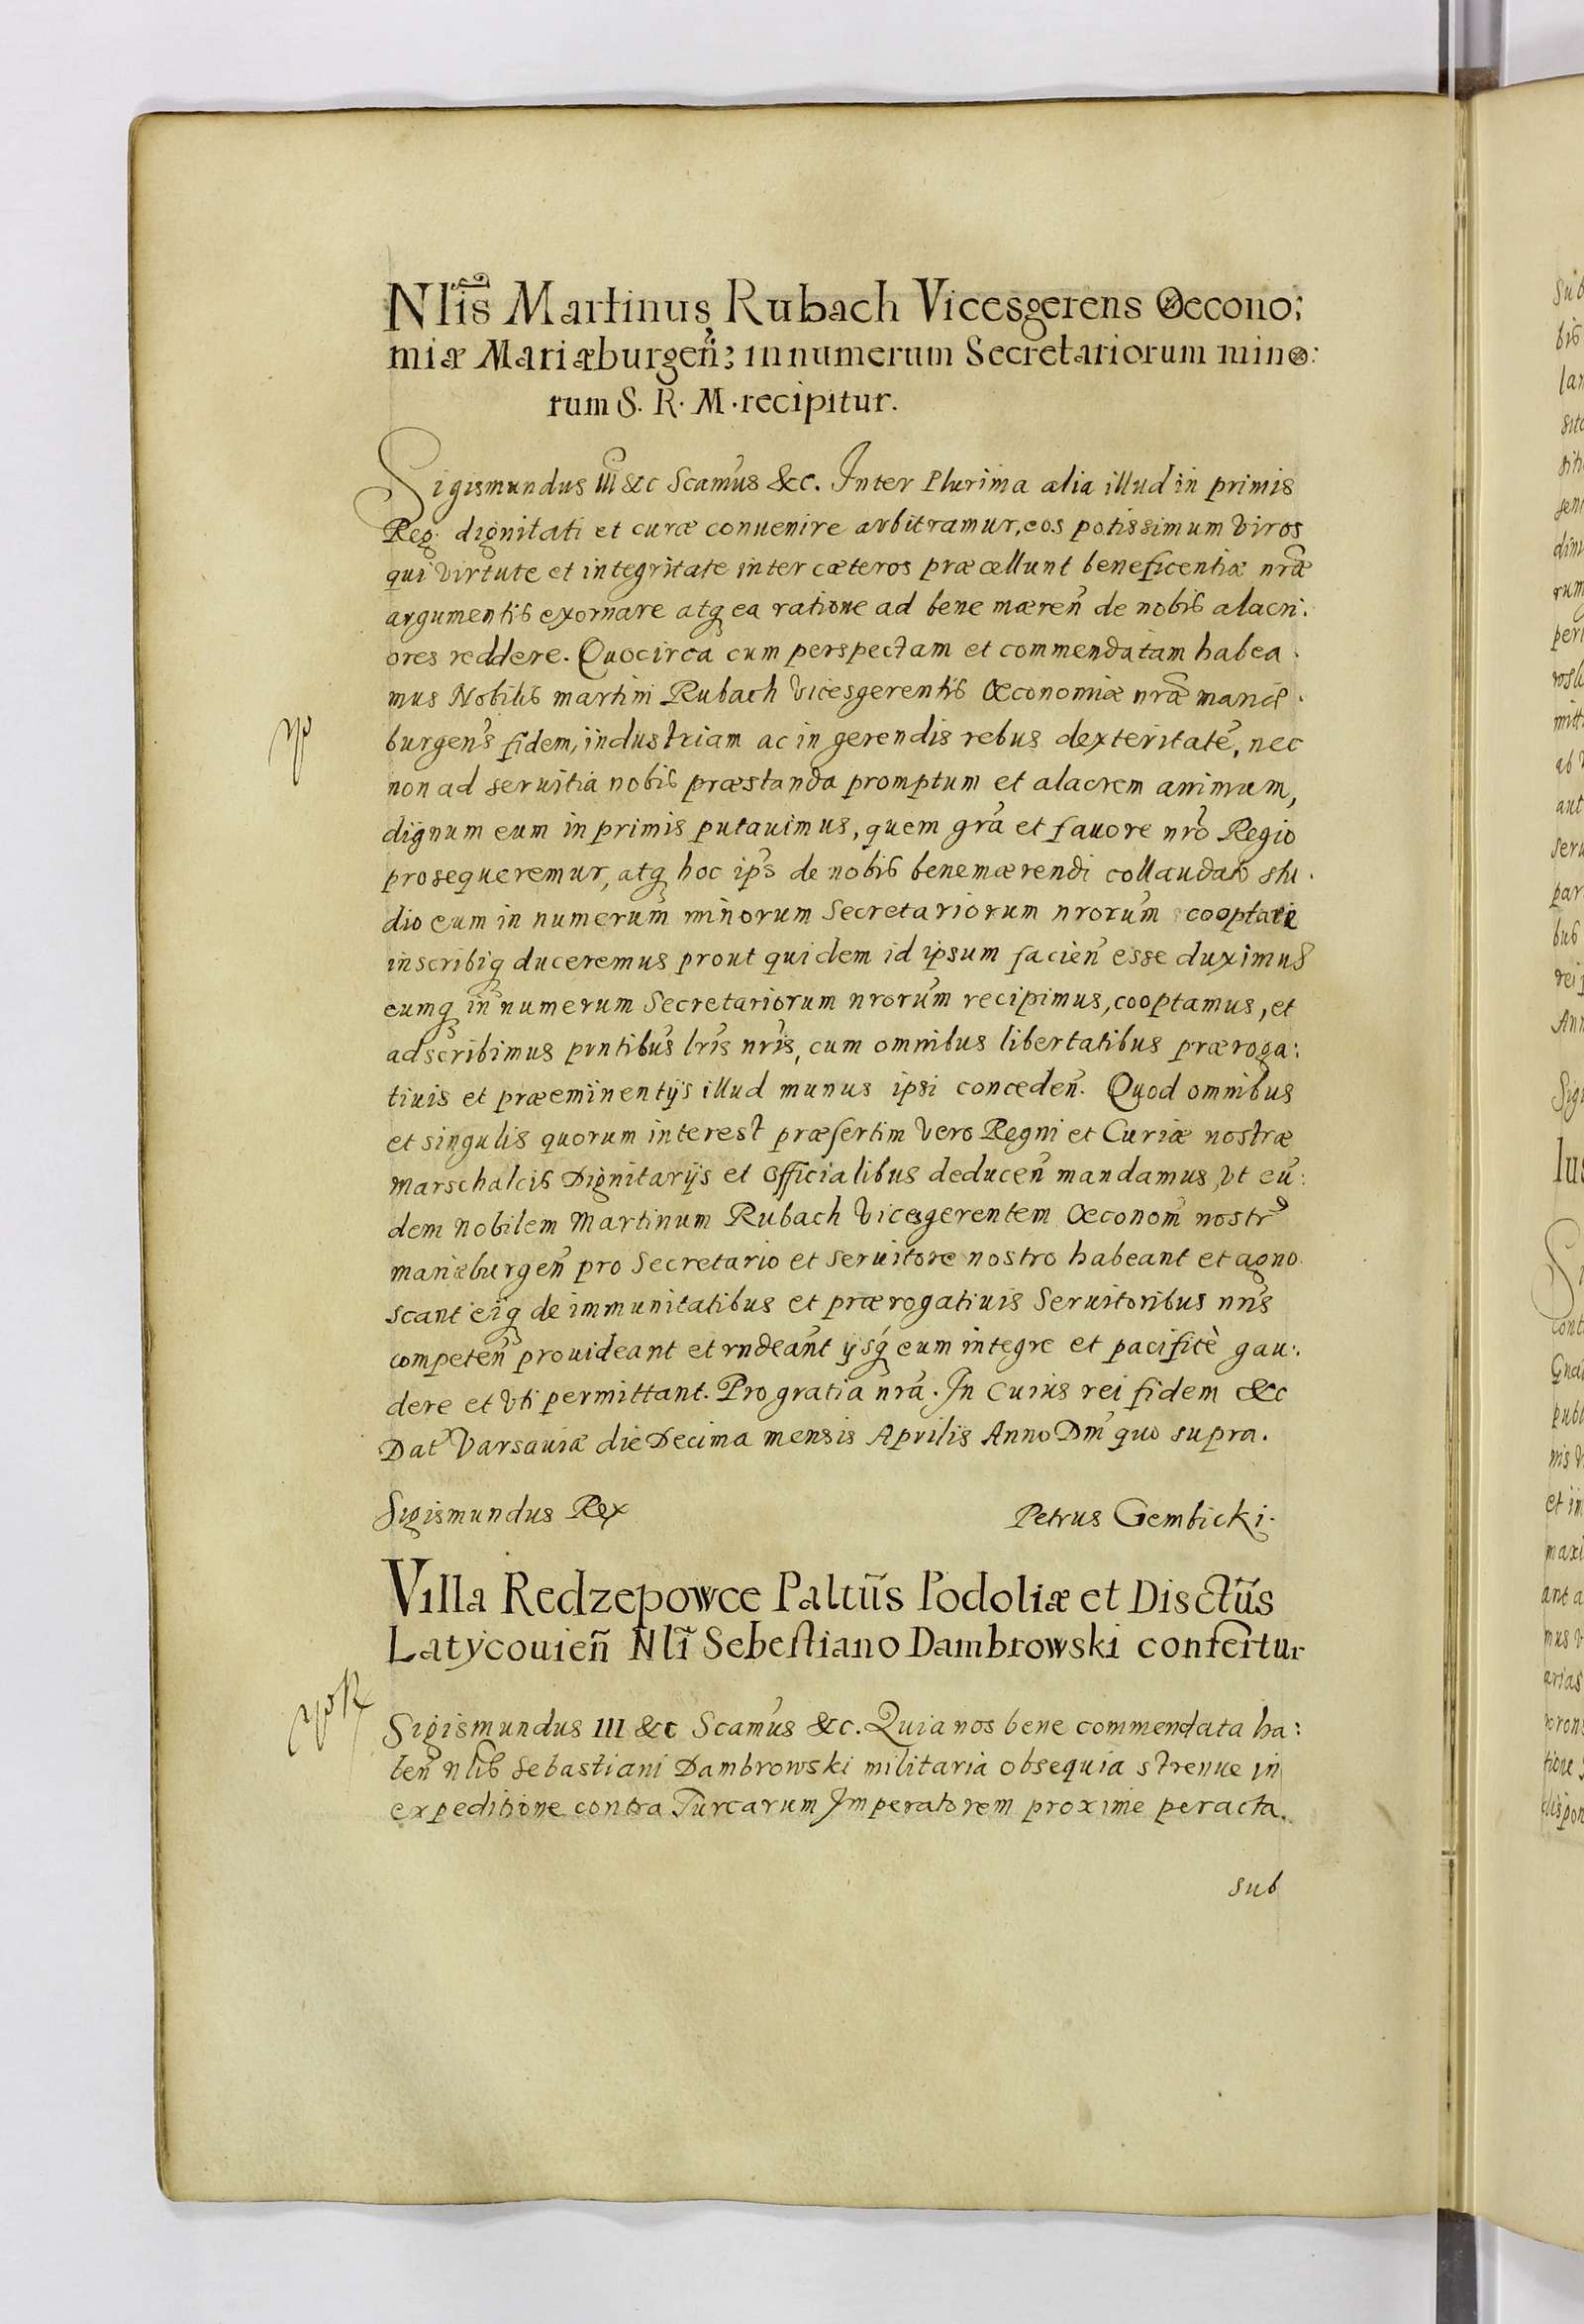 Nlis̃ Martinus Rubach Vicesgerens Oecono:
miæ Mariæburgeñ; in numerum Secretariorum mino:
rum S. R. M. recipitur.
Sigismundus III &c Scamus̃ &c. Inter Plurima alia illud in primis
Reg. dignitati et curæ conuenire arbitramur, eos potissimum viros
qui virtute et integritate inter cæteros præcellunt beneficentiæ nrãe
argumentis exornare atq ea ratione ad bene mæreñ de nobis alacri:
ores reddere. Quocirca cum perspectam et commendatam habea.
mus Nobilis martini Rubach vicesgerentis Œconomiæ nrãe mariæ.
burgens̃ fidem, industriam ac in gerendis rebus dexteritatẽ, nec
non ad seruitia nobis præstanda promptum et alacrem animum,
dignum eum in primis putauimus, quem grã et fauore nrõ Regio
prosequeremur, atq hoc ips̃ de nobis benemærendi collaudato stu.
dio eum in numerum minorum Secretariorum nrorũm cooptare
inscribiq duceremus prout quidem id ipsum facieñ esse duximus
eumq in numerum Secretariorum nrorũm recipimus, cooptamus, et
adscribimus pntibũs lrĩs nrĩs, cum omnibus libertatibus præroga:
tiuis et præeminentijs illud munus ipsi concedeñ. Quod omnibus
et singulis quorum interest præsertim vero Regni et Curiæ nostræ
Marschalcis Dignitarijs et Officialibus deduceñ mandamus, vt eũ:
dem Nobilem Martinum Rubach vicesgerentem Œconom̃ nostr
mariæburgeñ pro Secretario et seruitore nostro habeant et agno
scant eiq de immunitatibus et prærogatiuis Seruitoribus nrĩs
competeñ prouideant et rndeãnt ijsq eum integre et pacificè gau:.
dere et vti permittant. Pro gratia nrã. In Cuius rei fidem &c
Dat̃ Varsauiæ die Decima mensis Aprilis Anno Dm̃ quo supra.
Sigismundus Rex Petrus Gembicki.
Villa Redzepowce Paltũs Podoliæ et Disctũs
Latÿcouieñ Nlĩ Sebestiano Dambrowski confertur
Sigismundus III &c Scamũs &c. Quia nos bene commendata ha:
beñ nlis̃ Sebastiani Dambrowski militaria obsequia strenue in
expeditione contra Turcarum Imperatorem proxime peracta.
sub